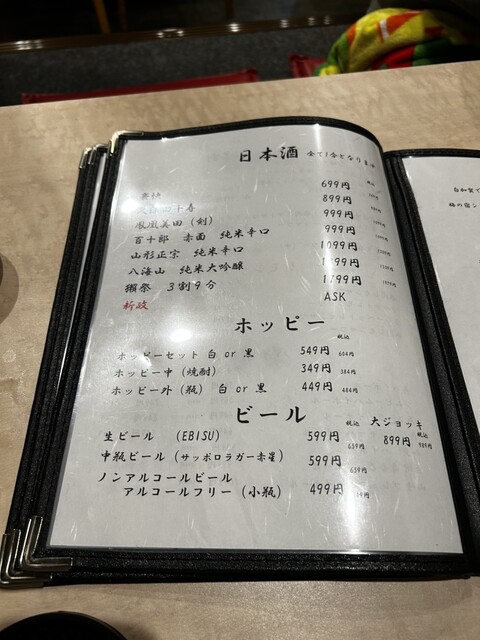 日本酒 全て1合となります
税込
699円
899円
鳳凰美田（剣） 999円
百十郎 赤面 純米辛口 999円
山形正宗 純米辛口 1099円
八海山 純米大吟醸
獺祭 3割9分 1799円
ASK
ホッピー
税込
ホッピーセット 白 or 黒 549円 604円
ホッピー中（焼酎） 349円 384円
ホッピー外（瓶） 白 or 黒 449円
ビール
税込 大ジョッキ 税込
生ビール （EBISU） 599円 659円 899円 989円
中瓶ビール（サッポロラガー赤星） 599円 659円
ノンアルコールビール
アルコールフリー（小瓶） 499円